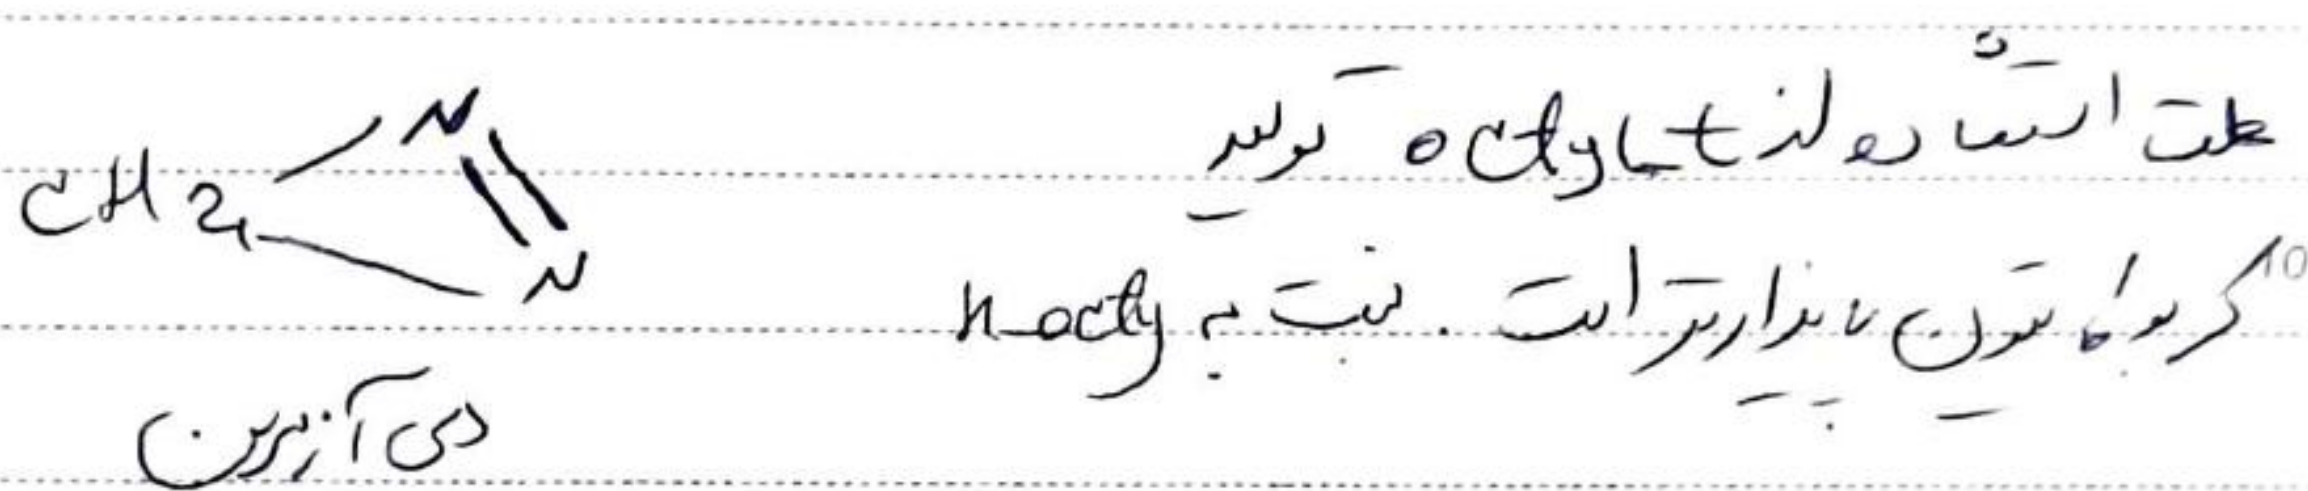 علت استفاده از t octyl تولید
کربوکاتیون پایدارتر است. نسبت به n-octy
10
CH2 N N
دی آزیرین